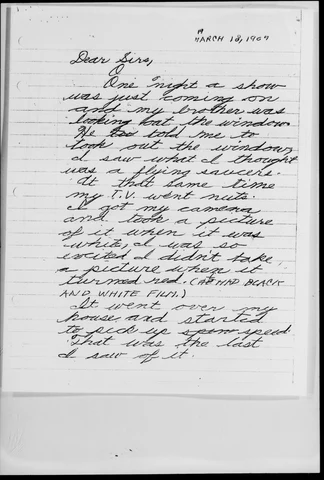 MARCH 18, 1967
Dear Sirs,
One night a show
was just coming on
and my brother was
looking out the window.
He told me to
look out the window,
I saw what I thought
was a flying saucers.
At that same time
my T.V. went nuts.
I got my camera
and took a picture
of it when it was
white, I was so
excited I didn't take
a picture when it
turned red. (AND BLACK
AND WHITE FILM.)
It went over my
house and started
to pick up speed.
That was the last
I saw of it.